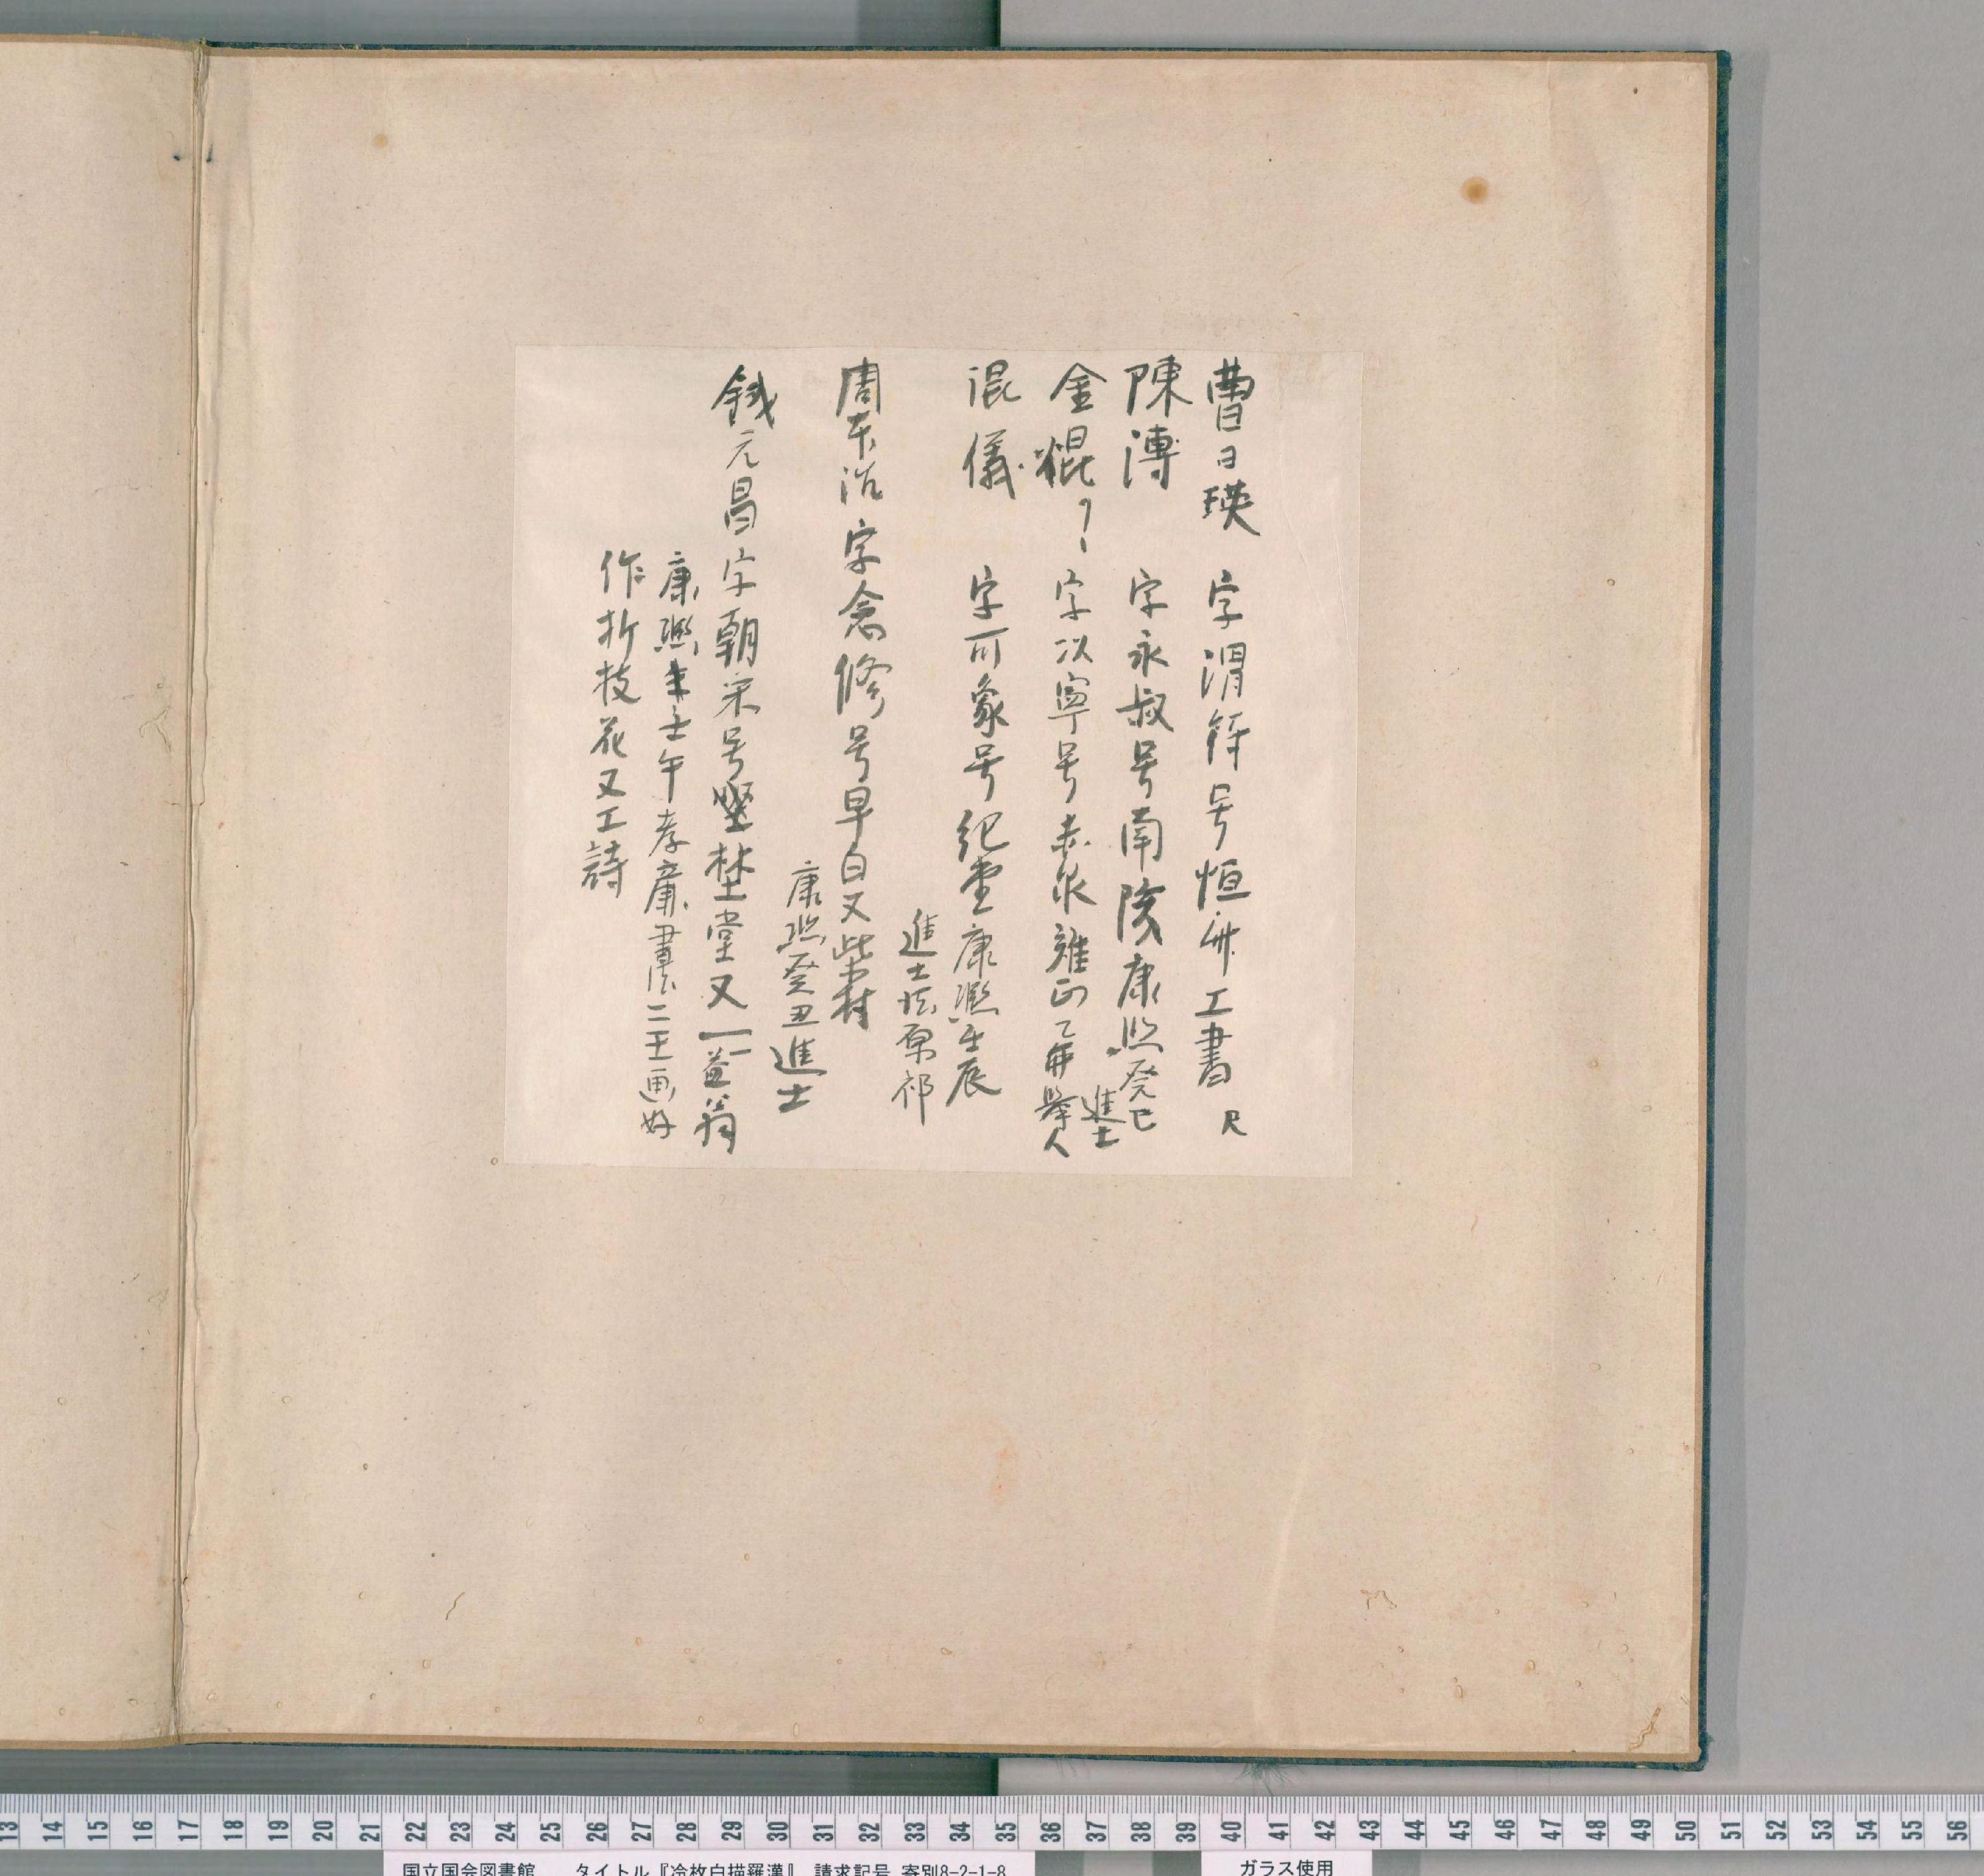 曹曰瑛 字渭符号恒斎 工書 尺
陳溥 字永叔号南陔康熙癸巳
進士
金焜? 字以寧号赤泉雍正乙卯挙人
混儀 字可象号紀堂康熙壬辰
進士
周本治字念修号早白又柴村
康熙癸丑進士
钱元昌字朝采号埜堂又一益翁
康熙壬午孝廉書法二王画好
作折枝花又工詩
13 14 15 16 17 18 19 20 21 22 23 24 25 26 27 28 29 30 31 32 33 34 35 36 37 38 39 40 41 42 43 44 45 46 47 48 49 50 51 52 53 54 55 56
国立国会図書館 タイトル『冷枚白描羅漢』 請求記号 寄別8-2-1-8
ガラス使用